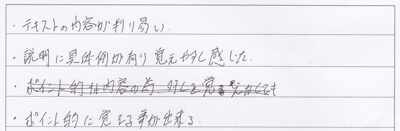 ・テキストの内容が判り易い。
・説明に具体例が有り覚えやすく感じた。
・ポイント的な内容の為、
・ポイント的に覚える事が出来る。